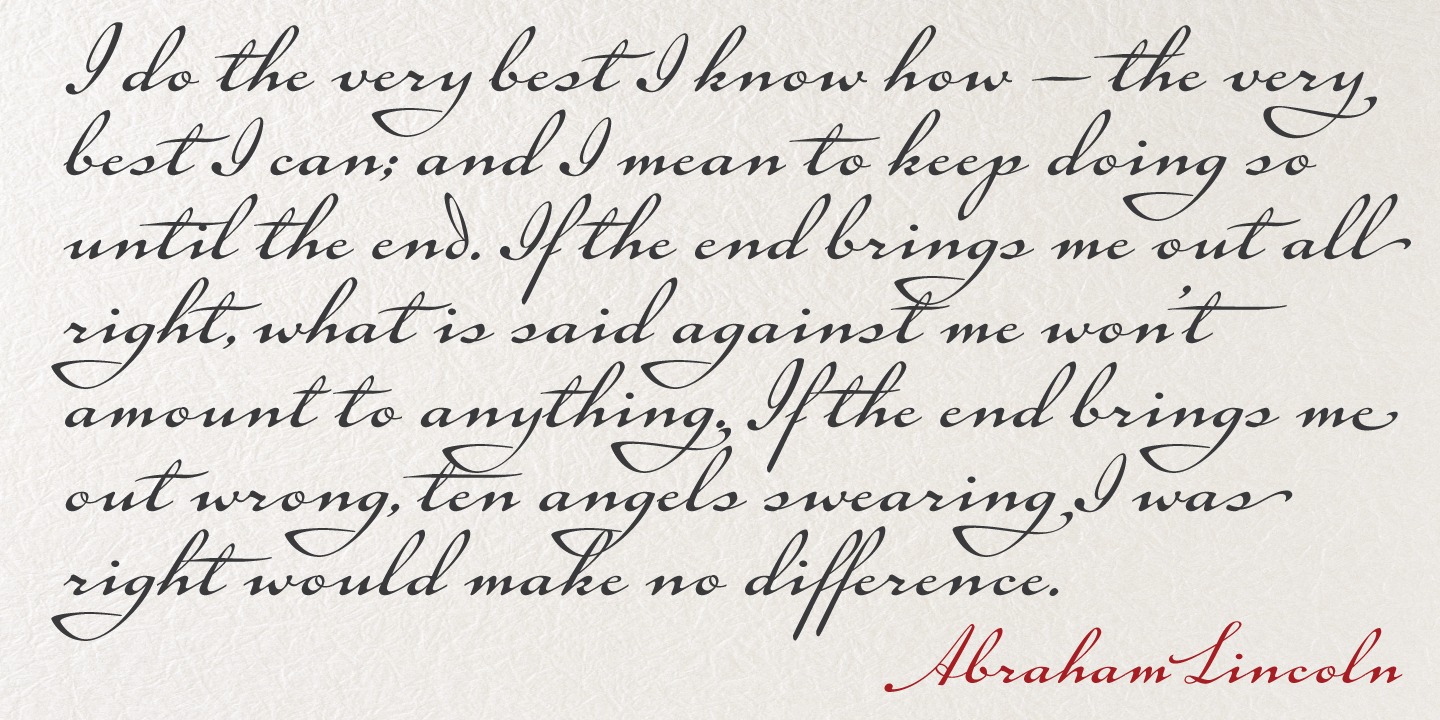 I do the very best I know how – the very
best I can; and I mean to keep doing so
until the end. If the end brings me out all
right, what is said against me won't
amount to anything. If the end brings me
out wrong, ten angels swearing I was
right would make no difference.
Abraham Lincoln